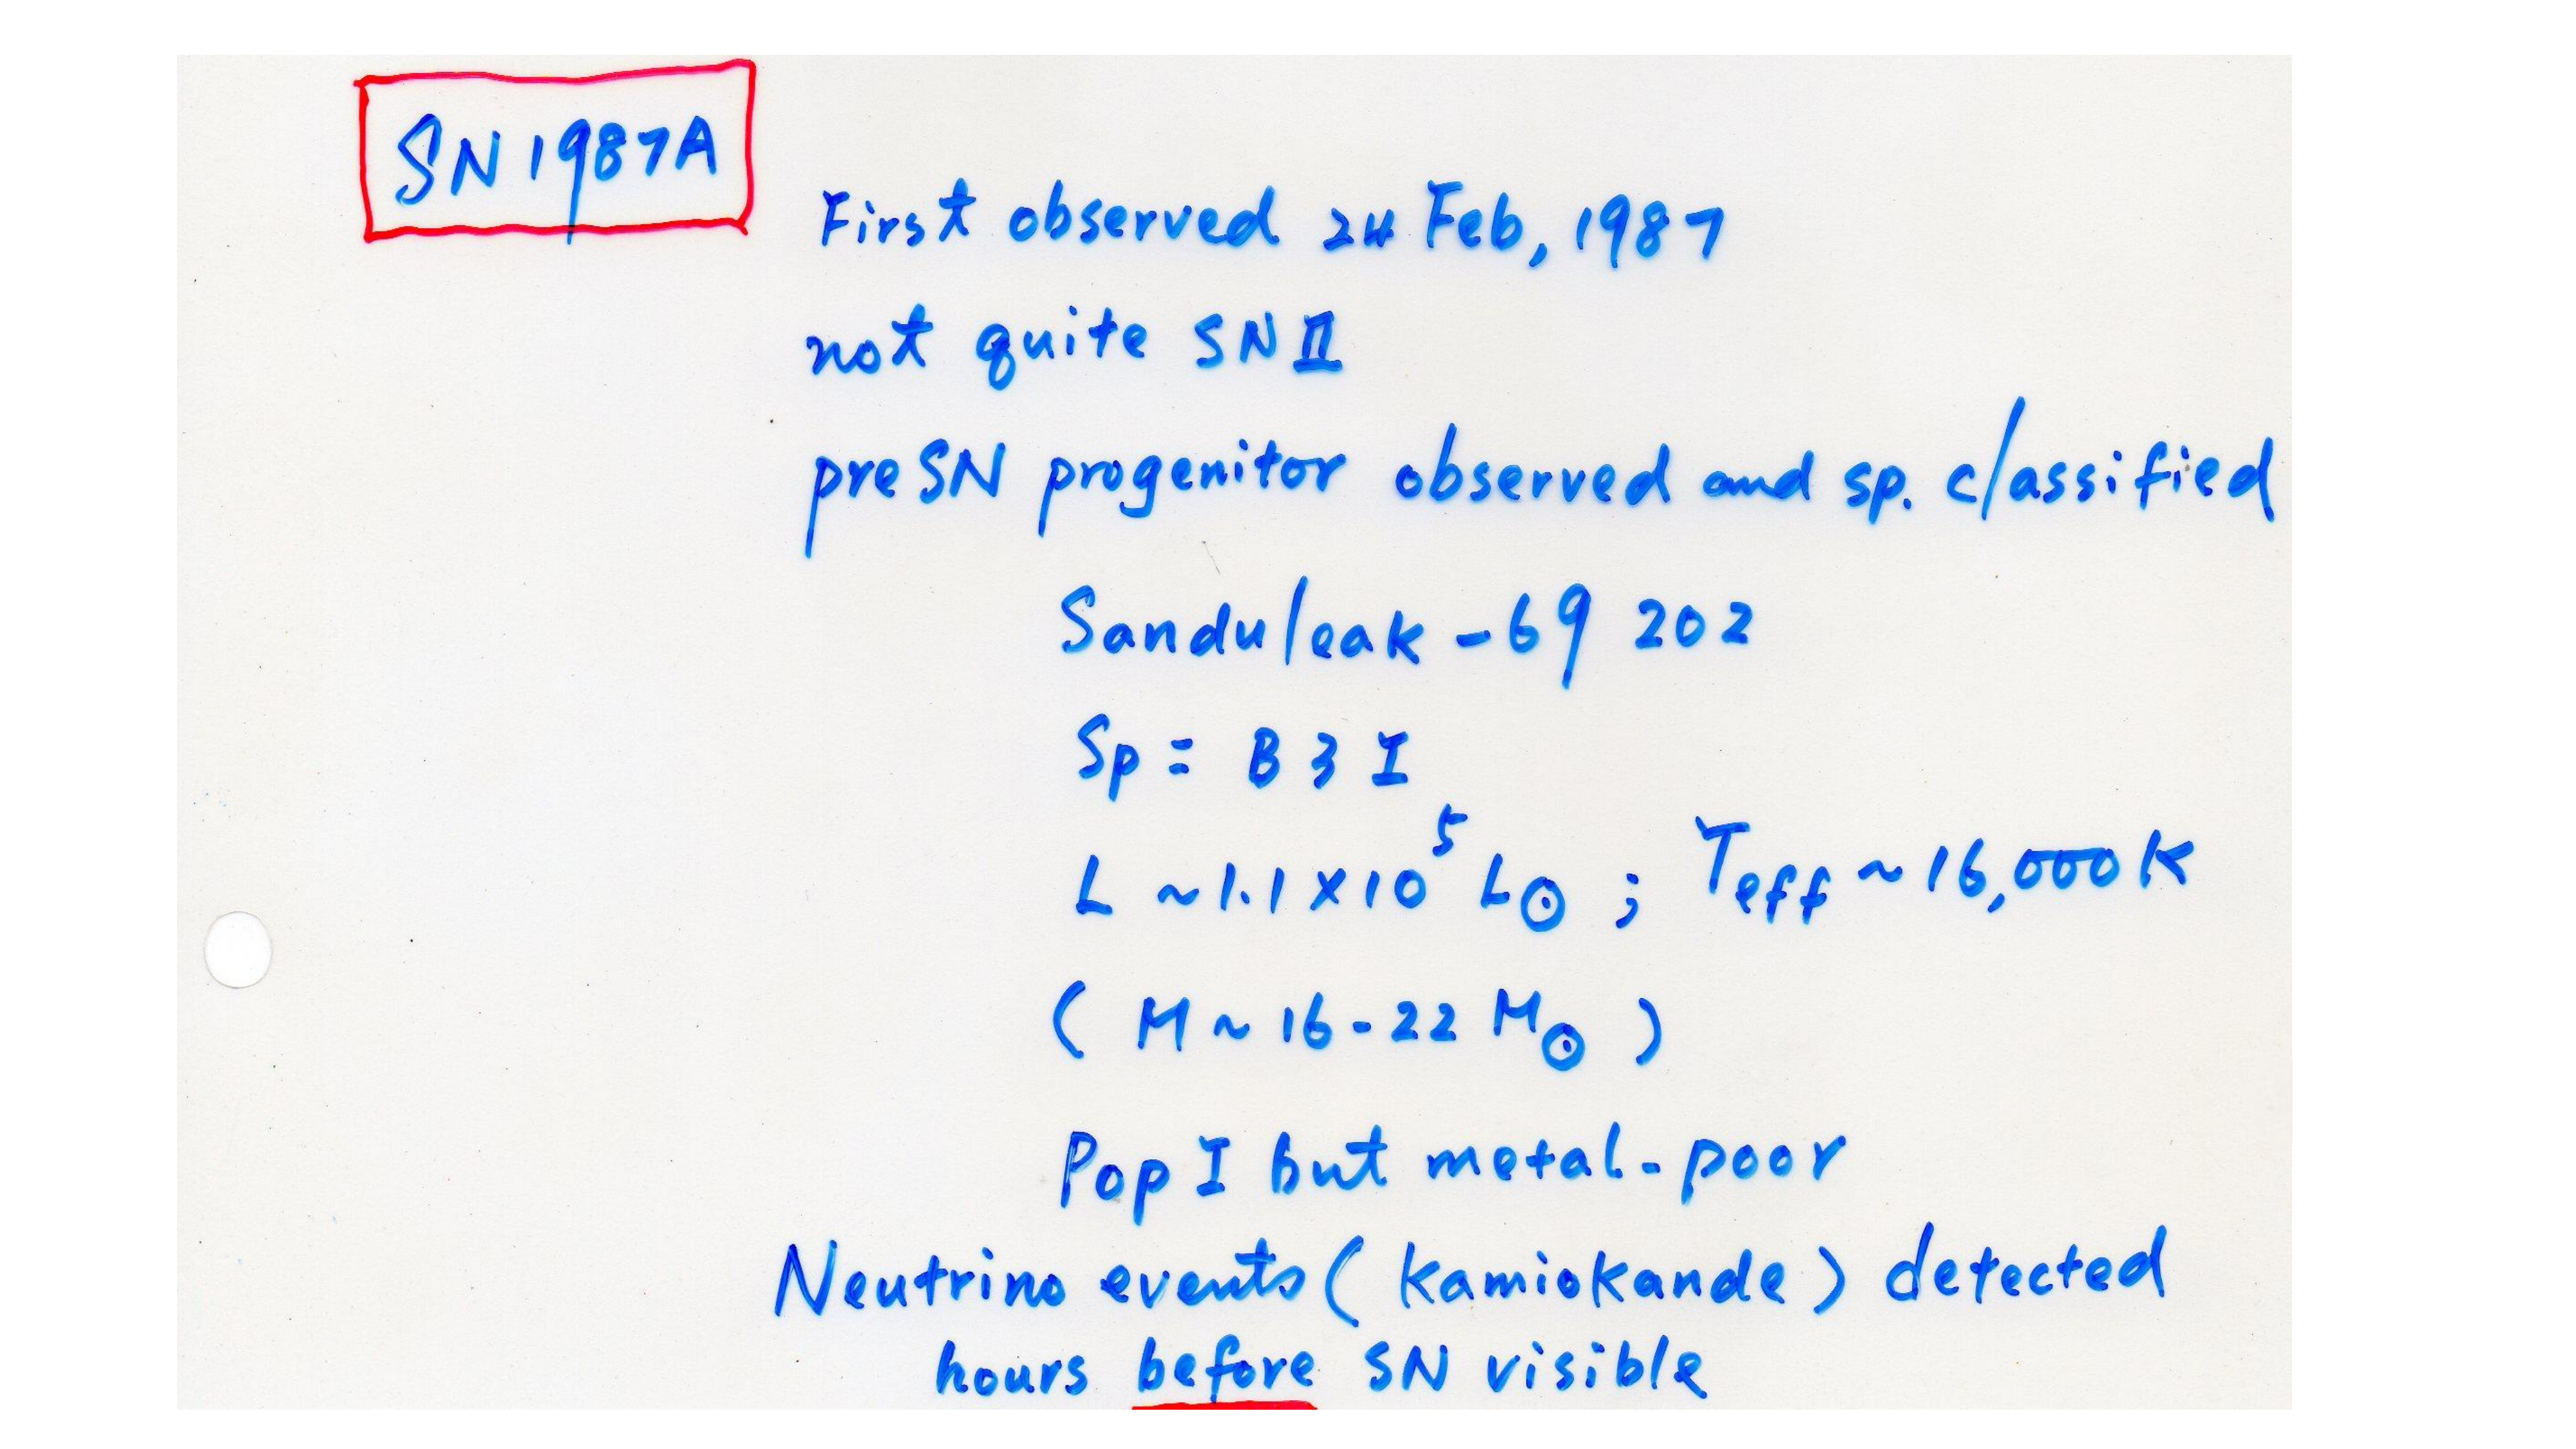 SN 1987A
First observed 24 Feb, 1987
not quite SN II
preSN progenitor observed and sp. classified
Sanduleak -69 202
Sp = B3 I
L ~1.1×10⁵ L⊙ ; Teff ~16,000 K
( M ~ 16-22 M⊙ )
Pop I but metal-poor
Neutrino events (Kamiokande) detected
hours before SN visible